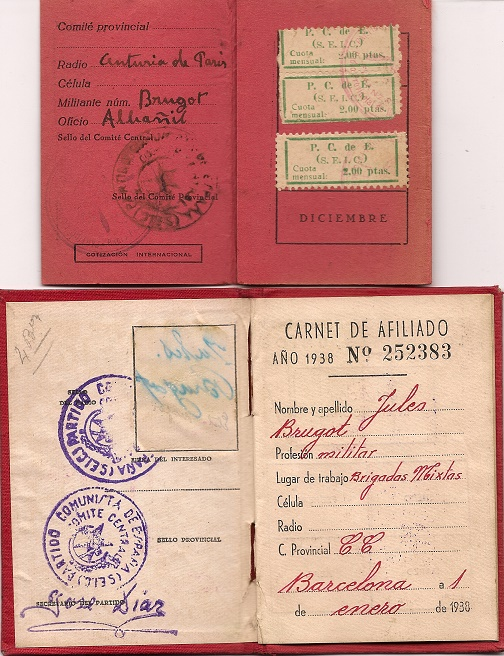 Comité provincial
Radio Centuria de Paris
Célula
Militante núm. Brugot
Oficio Albañil
Sello del Comité Central
Sello del Comité Provincial
COTIZACIÓN INTERNACIONAL
P. C. de E.
(S. E. I. C.)
Cuota mensual: 2.00 ptas.
P. C. de E.
(S. E. I. C.)
Cuota mensual: 2.00 ptas.
P. C. de E.
(S. E. I. C.)
Cuota mensual: 2.00 ptas.
DICIEMBRE
Jules
Brugot
DEL INTERESADO
PARTIDO COMUNISTA DE ESPAÑA (S.E.I.C.)
COMITE CENTRAL
SELLO PROVINCIAL
SECRETARIO DEL PARTIDO
José Díaz
CARNET DE AFILIADO
AÑO 1938 Nº 252383
Nombre y apellido Jules
Brugot
Profesión militar
Lugar de trabajo Brigadas Mixtas
Célula
Radio
C. Provincial CC
Barcelona a 1
de enero de 1938